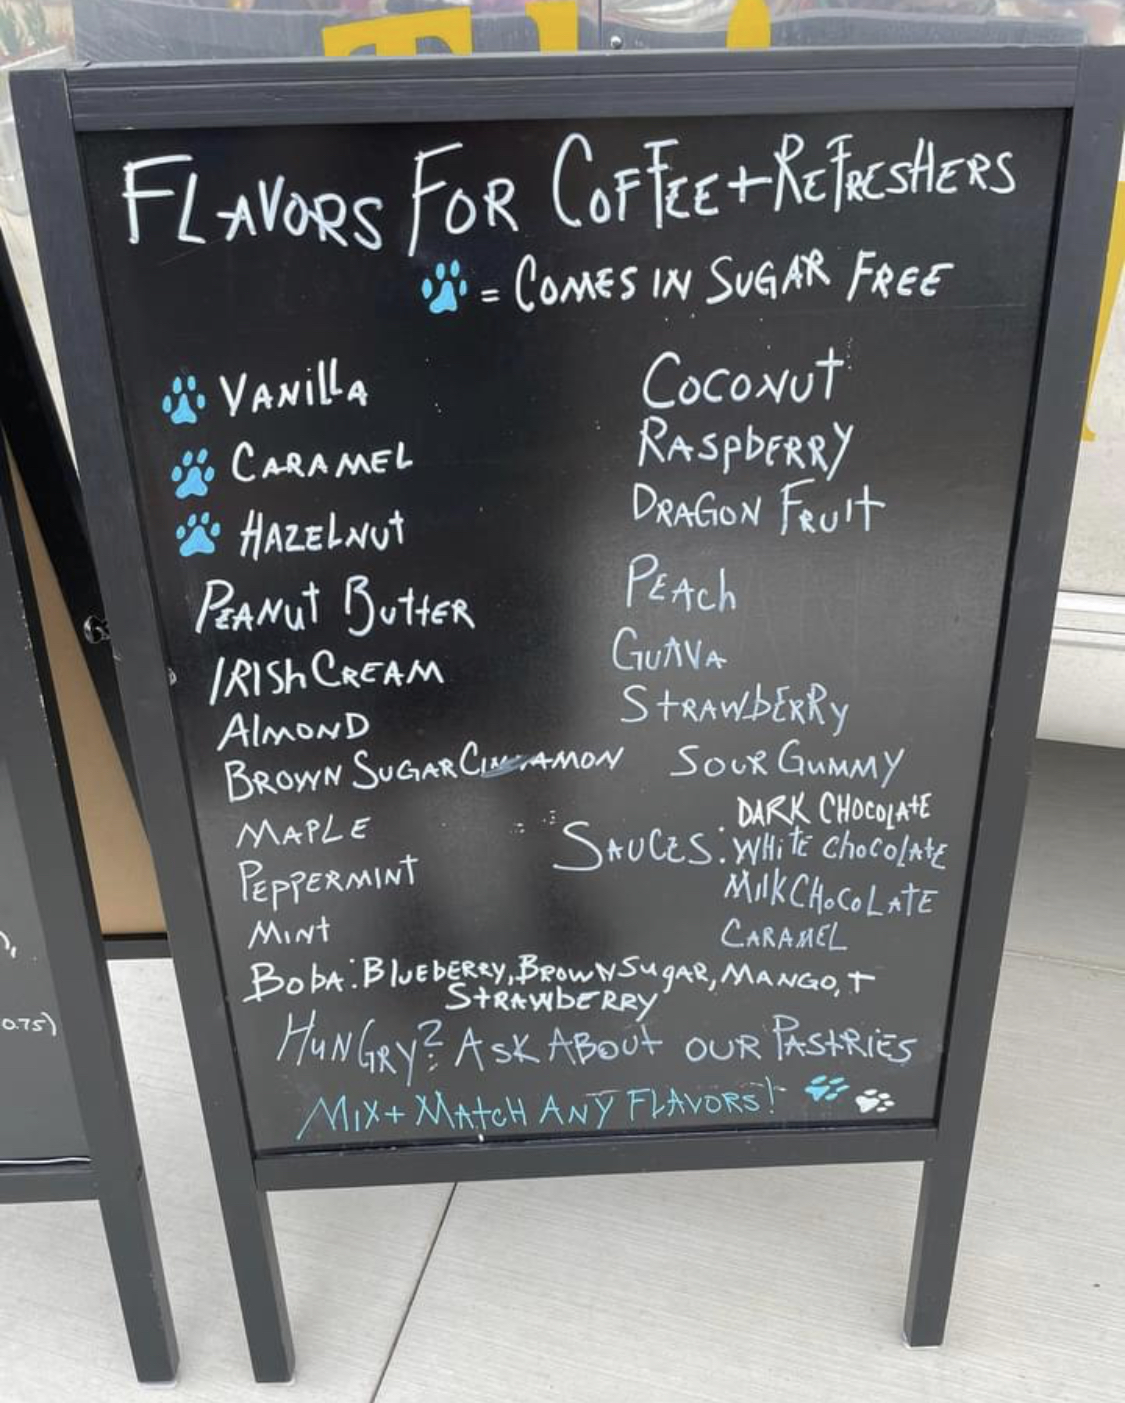 FLAVORS FOR COFFEE + REFRESHERS
= COMES IN SUGAR FREE
VANILLA
CARAMEL
HAZELNUT
PEANUT BUTTER
IRISH CREAM
ALMOND
BROWN SUGAR CINNAMON
MAPLE
PEPPERMINT
MINT
COCONUT
RASPBERRY
DRAGON FRUIT
PEACH
GUAVA
STRAWBERRY
SOUR GUMMY
SAUCES: DARK CHOCOLATE
WHITE CHOCOLATE
MILK CHOCOLATE
CARAMEL
BOBA: BLUEBERRY, BROWN SUGAR, MANGO, +
STRAWBERRY
HUNGRY? ASK ABOUT OUR PASTRIES
MIX + MATCH ANY FLAVORS!
0.75)